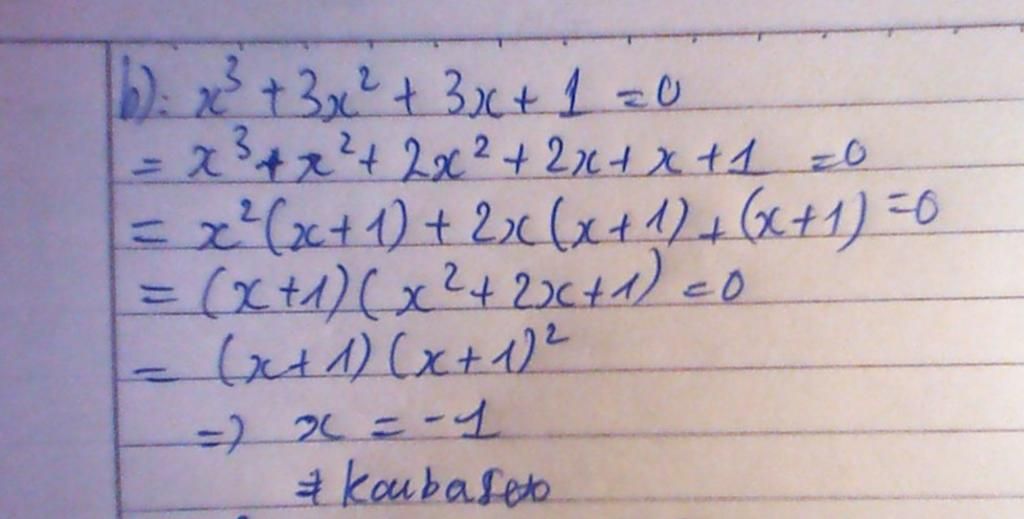 b): x³ + 3x² + 3x + 1 = 0
= x³ + x² + 2x² + 2x + x + 1 = 0
= x²(x+1) + 2x(x+1) + (x+1) = 0
= (x+1)(x² + 2x + 1) = 0
= (x+1)(x+1)²
=> x = -1